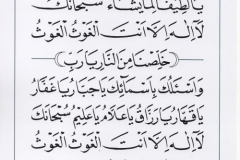 يَا لَطِيفًا لِمَا يَشَاءُ سُبْحَانَكَ
لَا إِلٰهَ إِلَّا أَنْتَ الْغَوْثَ الْغَوْثَ
خَلِّصْنَا مِنَ النَّارِ يَا رَبِّ
وَأَسْئَلُكَ بِأَسْمَائِكَ يَا جَبَّارُ يَا غَفَّارُ
يَا قَهَّارُ يَا رَزَّاقُ يَا عَلَّامُ يَا عَلِيمُ سُبْحَانَكَ
لَا إِلٰهَ إِلَّا أَنْتَ الْغَوْثَ الْغَوْثَ